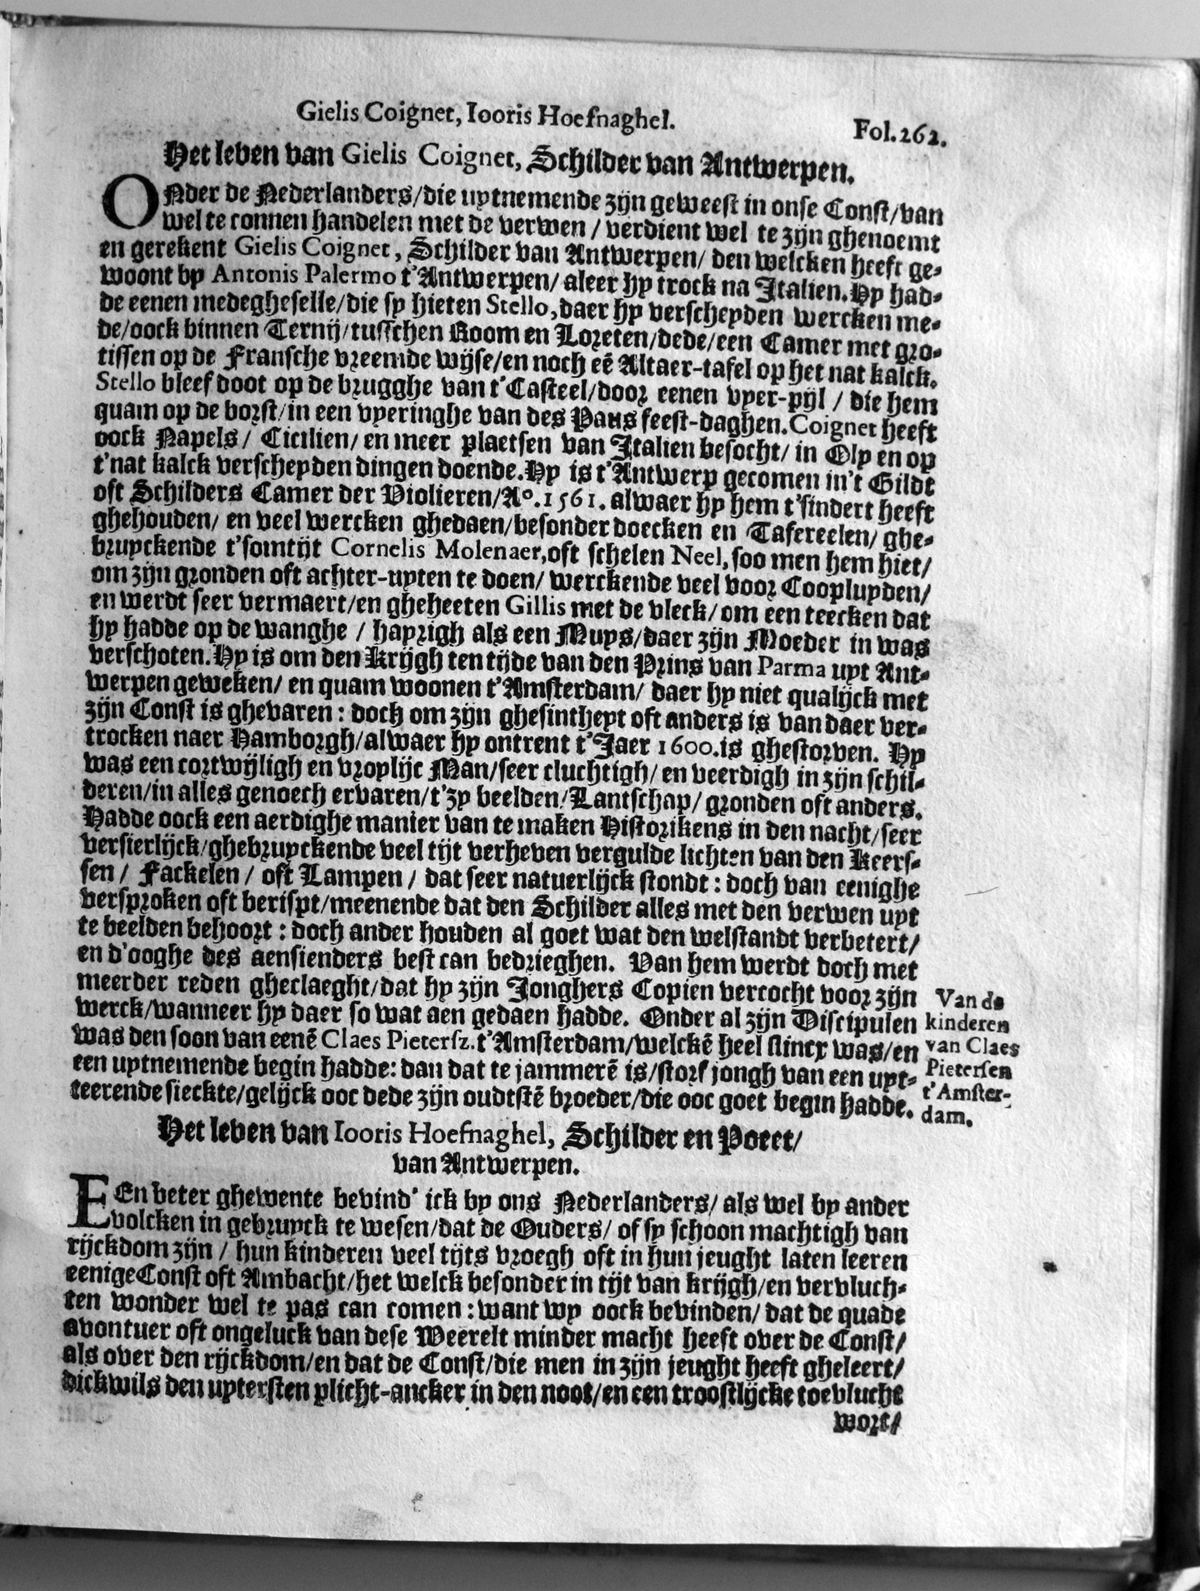 Gielis Coignet, Iooris Hoefnaghel.
Fol.262.
Het leben van Gielis Coignet, Schilder van Antwerpen.
ONder de Nederlanders/die uytnemende zijn geweest in onse Const/van
wel te connen handelen met de verwen / verdient wel te zijn ghenoemt
en gerekent Gielis Coignet, Schilder van Antwerpen/ den welcken heeft ge-
woont by Antonis Palermo t'Antwerpen/ aleer hy trock na Italien. Hy had-
de eenen medegheselle/die sy hieten Stello, daer hy verscheyden wercken me-
de/oock binnen Ternij/tusschen Room en Loreten/dede/een Camer met gro-
tissen op de Fransche vreemde wijse/en noch eē Altaer-tafel op het nat kalck.
Stello bleef doot op de brugghe van t'Casteel/door eenen vyer-pijl / die hem
quam op de borst/in een vyeringhe van des Paus feest-daghen. Coignet heeft
oock Napels/ Cicilien/ en meer plaetsen van Italien besocht/ in Oly en op
t'nat kalck verscheyden dingen doende. Hy is t'Antwerp gecomen in't Gildt
oft Schilders Camer der Violieren/Aº. 1561. alwaer hy hem t'sindert heeft
ghehouden/ en veel wercken ghedaen/besonder doecken en Tafereelen/ ghe-
bruyckende t'somtijt Cornelis Molenaer, oft schelen Neel, soo men hem hiet/
om zijn gronden oft achter-uyten te doen/ werckende veel voor Cooplupden/
en werdt seer vermaert/en gheheeten Gillis met de vleck/ om een teecken dat
hy hadde op de wanghe / hayrigh als een Muys/daer zijn Moeder in was
verschoten. Hy is om den Krijgh ten tijde van den Prins van Parma uyt Ant-
werpen geweken/ en quam woonen t'Amsterdam/ daer hy niet qualijck met
zijn Const is ghevaren : doch om zijn ghesintheyt oft anders is van daer ver-
trocken naer Hamborgh/alwaer hy ontrent t'Jaer 1600.is ghestorven. Hy
was een cortwijligh en vroylijc Man/seer cluchtigh/ en veerdigh in zijn schil-
deren/in alles genoech ervaren/t'zy beelden/Lantschap/ gronden oft anders.
Hadde oock een aerdighe manier van te maken Historikens in den nacht/seer
versierlijck/ghebruyckende veel tijt verheven vergulde lichten van den Keers-
sen / Fackelen / oft Lampen / dat seer natuerlijck stondt : doch van eenighe
versproken oft berispt/meenende dat den Schilder alles met den verwen uyt
te beelden behoort : doch ander houden al goet wat den welstandt verbetert/
en d'ooghe des aensienders best can bedrieghen. Van hem werdt doch met
meerder reden gheclaeght/dat hy zijn Jonghers Copien vercocht voor zijn
werck/wanneer hy daer so wat aen gedaen hadde. Onder al zijn Discipulen
was den soon van eenē Claes Pietersz. t'Amsterdam/welckē heel slincx was/en
een uytnemende begin hadde: dan dat te jammerē is/storf jongh van een uyt-
teerende sieckte/gelijck ooc dede zijn oudtstē broeder/die ooc goet begin hadde.
Van de
kinderen
van Claes
Pietersen
t'Amster-
dam.
Het leben van Iooris Hoefnaghel, Schilder en Poeet/
van Antwerpen.
EEn beter ghewente bevind' ick by ons Nederlanders/ als wel by ander
volcken in gebruyck te wesen/dat de Ouders/ of sy schoon machtigh van
rijckdom zijn / hun kinderen veel tijts vroegh oft in hun jeught laten leeren
eenige Const oft Ambacht/het welck besonder in tijt van krijgh/en vervluch-
ten wonder wel te pas can comen : want wy oock bevinden/ dat de quade
avontuer oft ongeluck van dese Weerelt minder macht heeft over de Const/
als over den rijckdom/en dat de Const/die men in zijn jeught heeft gheleert/
dickwils den uytersten plicht-ancker in den noot/en een troostlijcke toevlucht
wort/